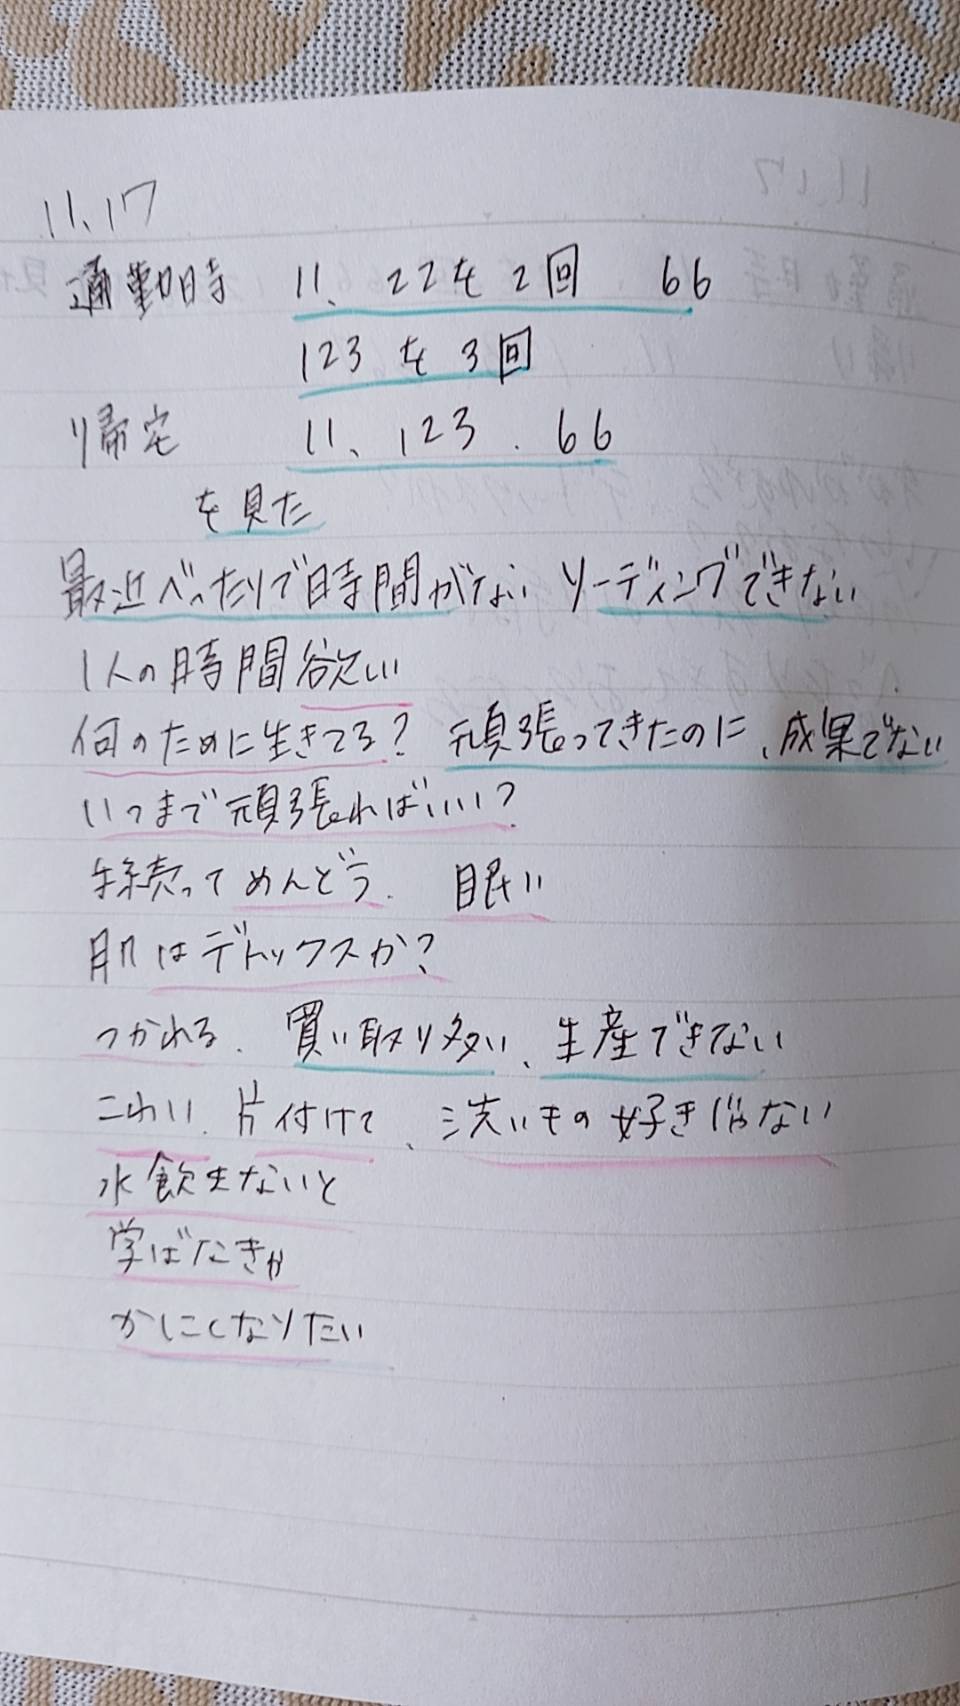 11.17
通勤時 11、22を2回 66
123を3回
帰宅 11、123.66
を見た
最近べったりで時間がない リーディングできない
1人の時間欲しい
何のために生きてる?頑張ってきたのに、成果でない
いつまで頑張ればいい?
手続ってめんどう. 眠い
肌はデトックスか?
つかれる. 買い取り多い、生産できない
こわい. 片付けて、洗いもの好きじゃない
水飲まないと
学ばなきゃ
かしこくなりたい